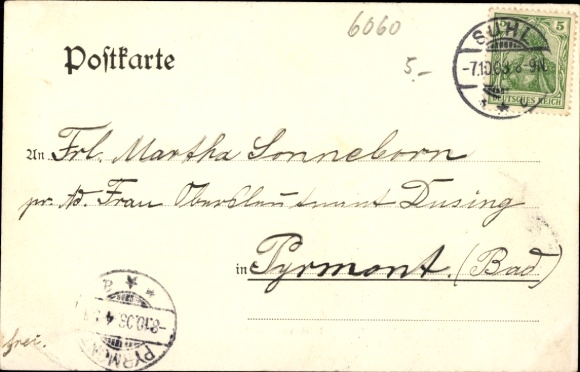 6060
5
SUHL
-7.10.03.8-9N.
DEUTSCHES REICH
Postkarte
5.-
An Frl. Martha Sonneborn
pr. Ad. Frau Oberstleutnant Dusing
in Pyrmont. (Bad)
-8.10.03.4
PYRMONT
frei.